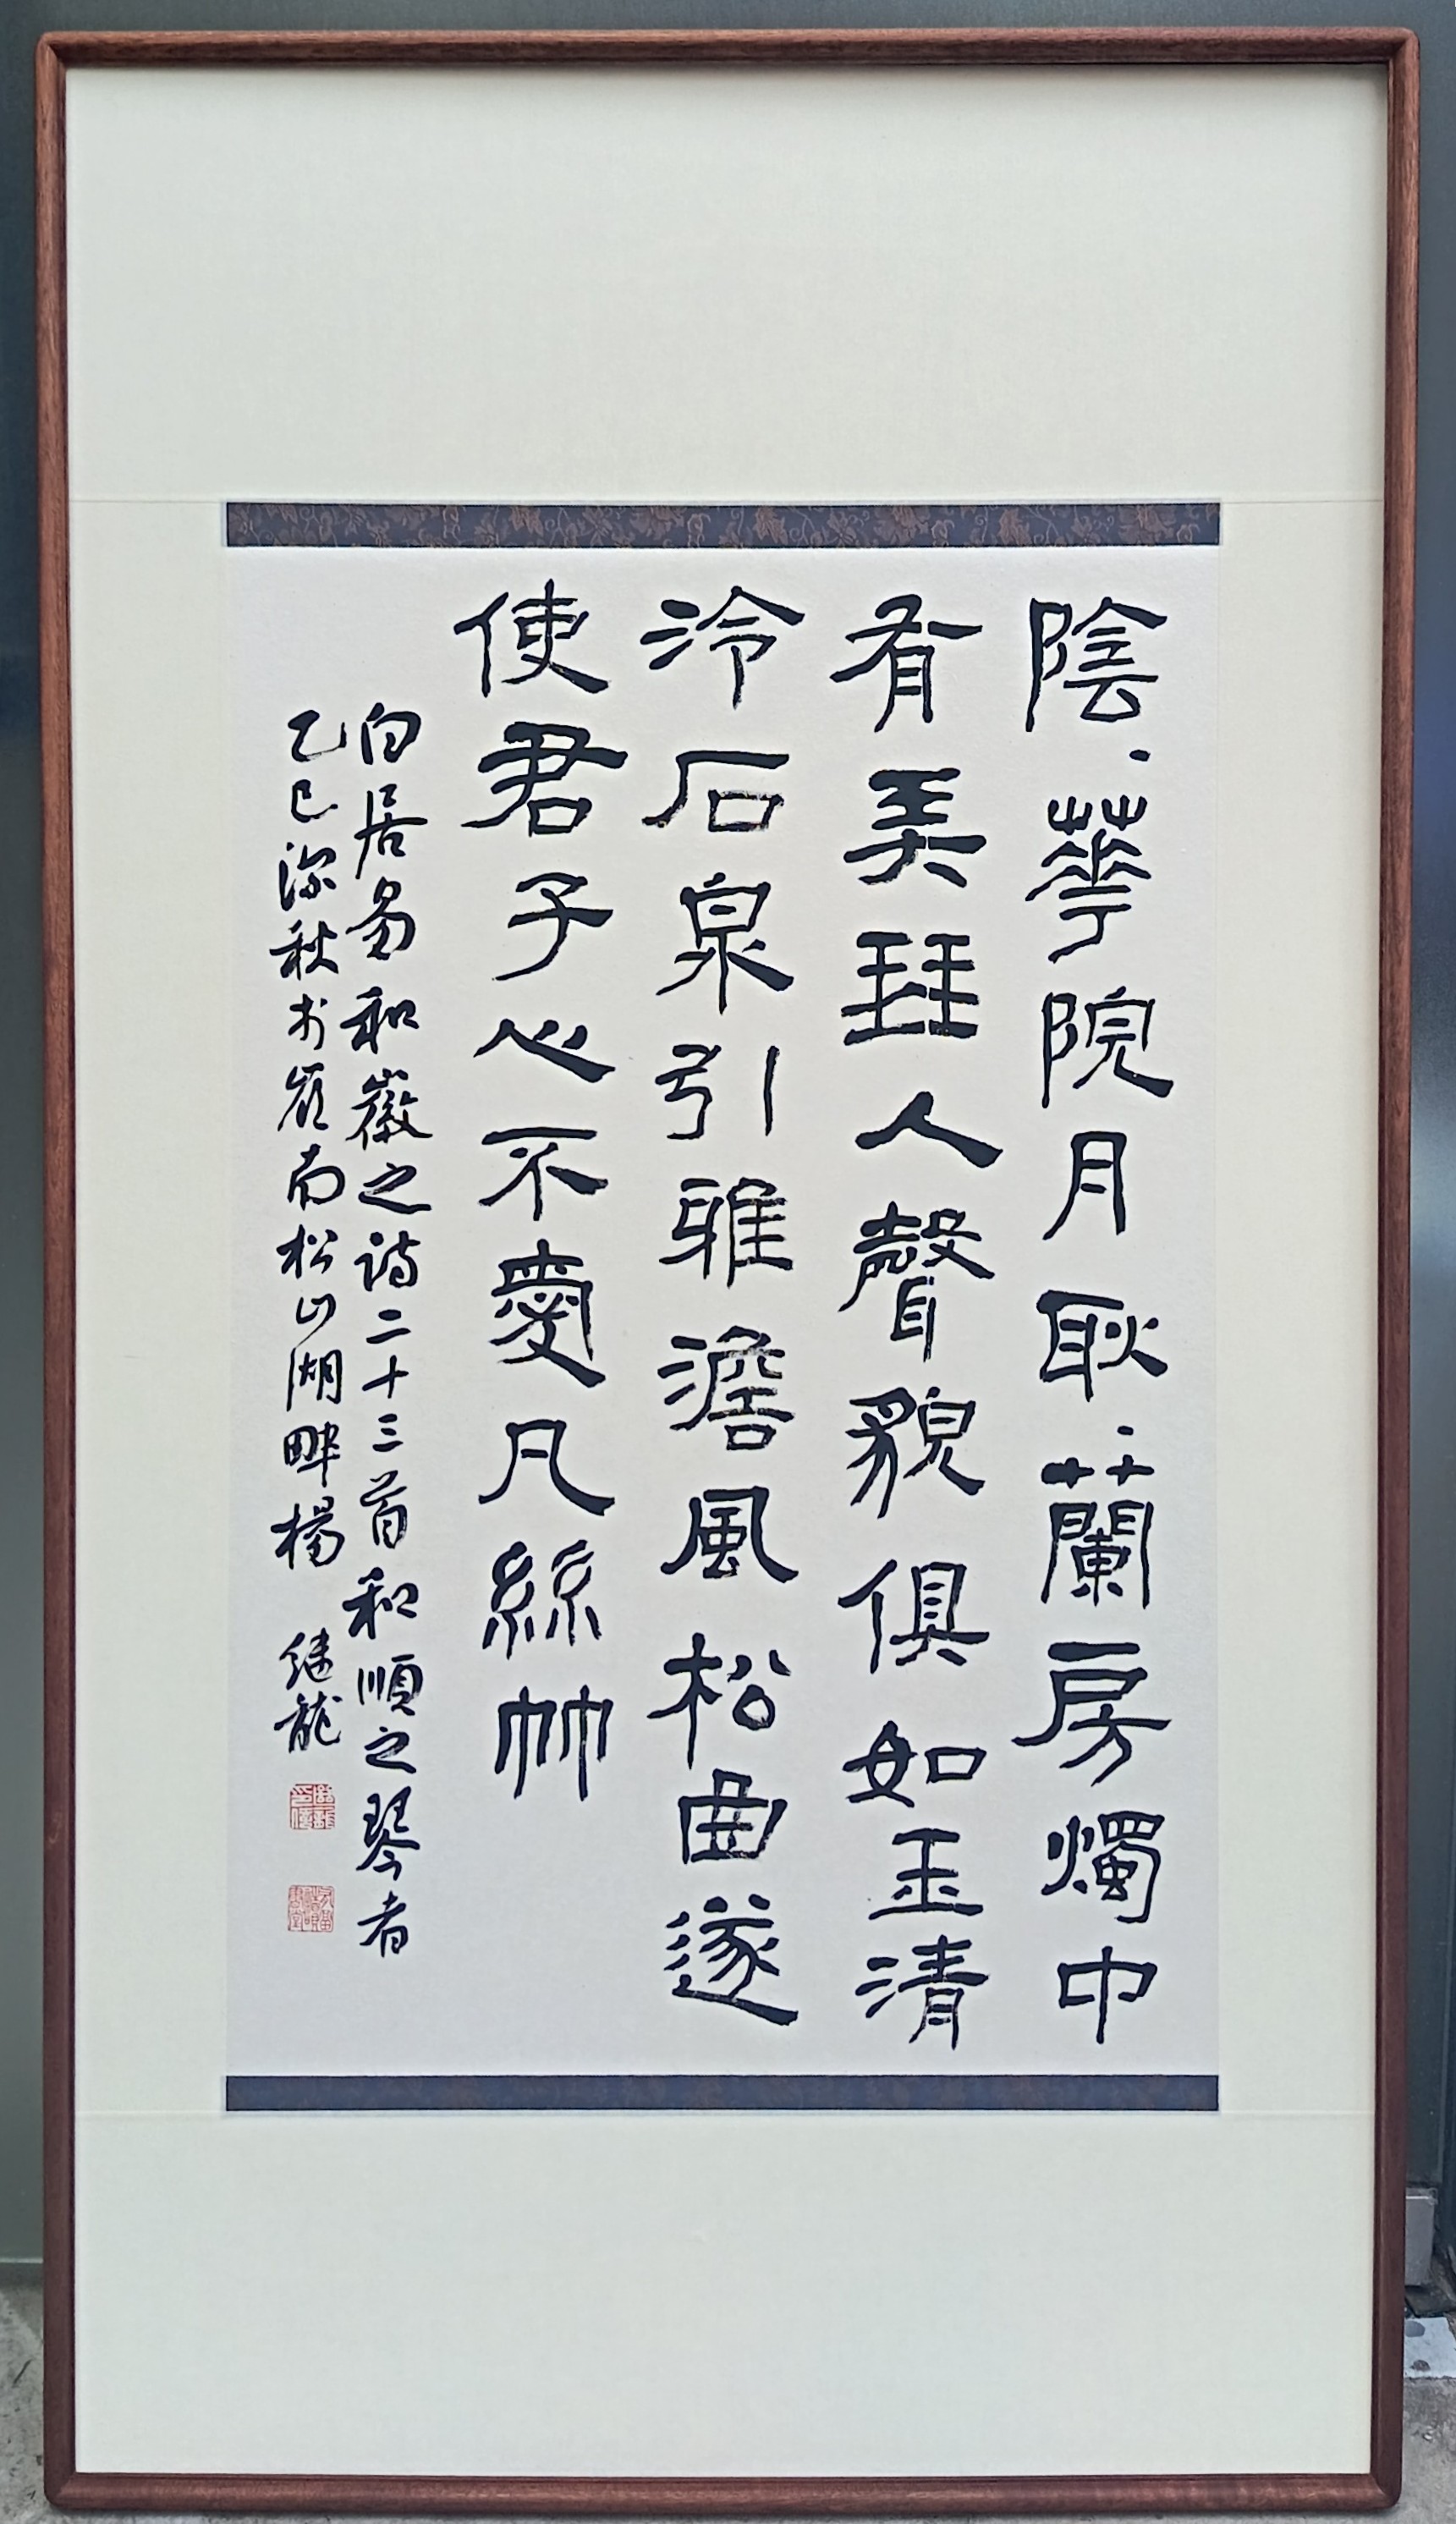 陰、華院月耿、蘭房燭中
有弄琴人聲貌俱如玉清
泠石泉引雅澹風松曲遂
使君子心不愛凡絲竹
白居易和微之詩二十三首和順之琴者
乙巳深秋於嶺南松山湖畔楊 继龍